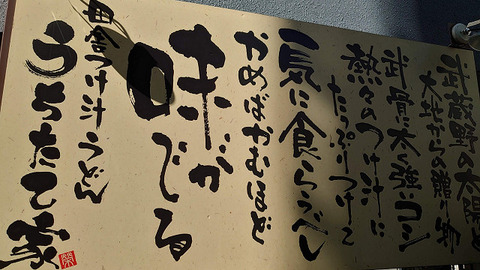 武蔵野の太陽と
大地からの贈り物
武骨に太く強いコシ
熱々のつけ汁に
たっぷりつけて
一気に食らうべし
かめばかむほど
味がでる
田舎つけ汁うどん
うちたて家